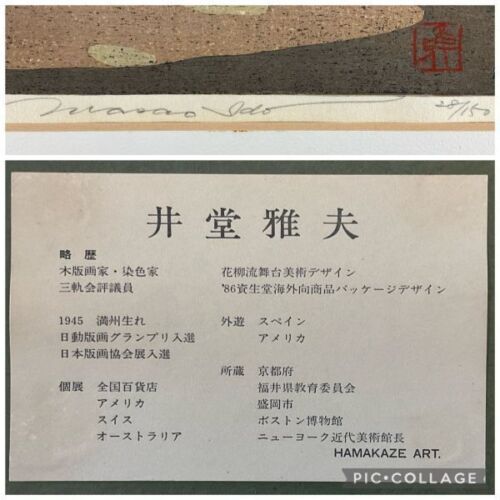 Masao Ido 28/150
井堂雅夫
略 歴
木版画家・染色家
三軌会評議員
花柳流舞台美術デザイン
'86資生堂海外向商品パッケージデザイン
1945 満州生れ
日動版画グランプリ入選
日本版画協会展入選
外遊 スペイン
アメリカ
個展 全国百貨店
アメリカ
スイス
オーストラリア
所蔵 京都府
福井県教育委員会
盛岡市
ボストン博物館
ニューヨーク近代美術館長
HAMAKAZE ART.
PIC•COLLAGE